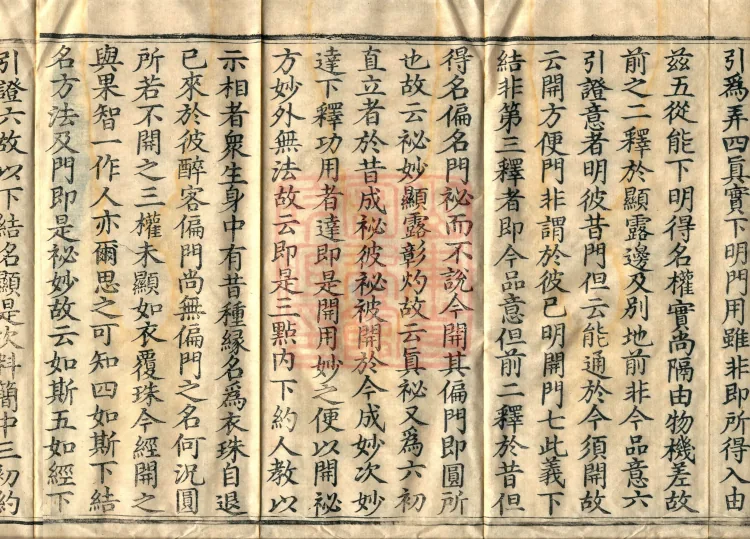 引為弄四真實下明門用雖非即所得入由
茲五從能下明得名權實尚隔由物機差故
前之二釋於顯露邊及別地前非今品意六
引證意者明彼昔門但云能通於今須開故
云開方便門非謂於彼已明開門七此義下
結非第三釋者即今品意但前二釋於昔但
得名偏名門祕而不說今開其偏門即圓所
也故云祕妙顯露彰灼故云真祕又為六初
直立者於昔成祕彼祕被開於今成妙次妙
達下釋功用者達即是開用妙之便以開祕
方妙外無法故云即是三點內下約人教以
示相者眾生身中有昔種緣名為衣珠自退
已來於彼醉客偏門尚無偏門之名何況圓
所若不開之三權未顯如衣覆珠今經開之
與果智一作人亦爾思之可知四如斯下結
名方法及門即是祕妙故云如斯五如經下
引證六故以下結名顯是次料簡中三初約